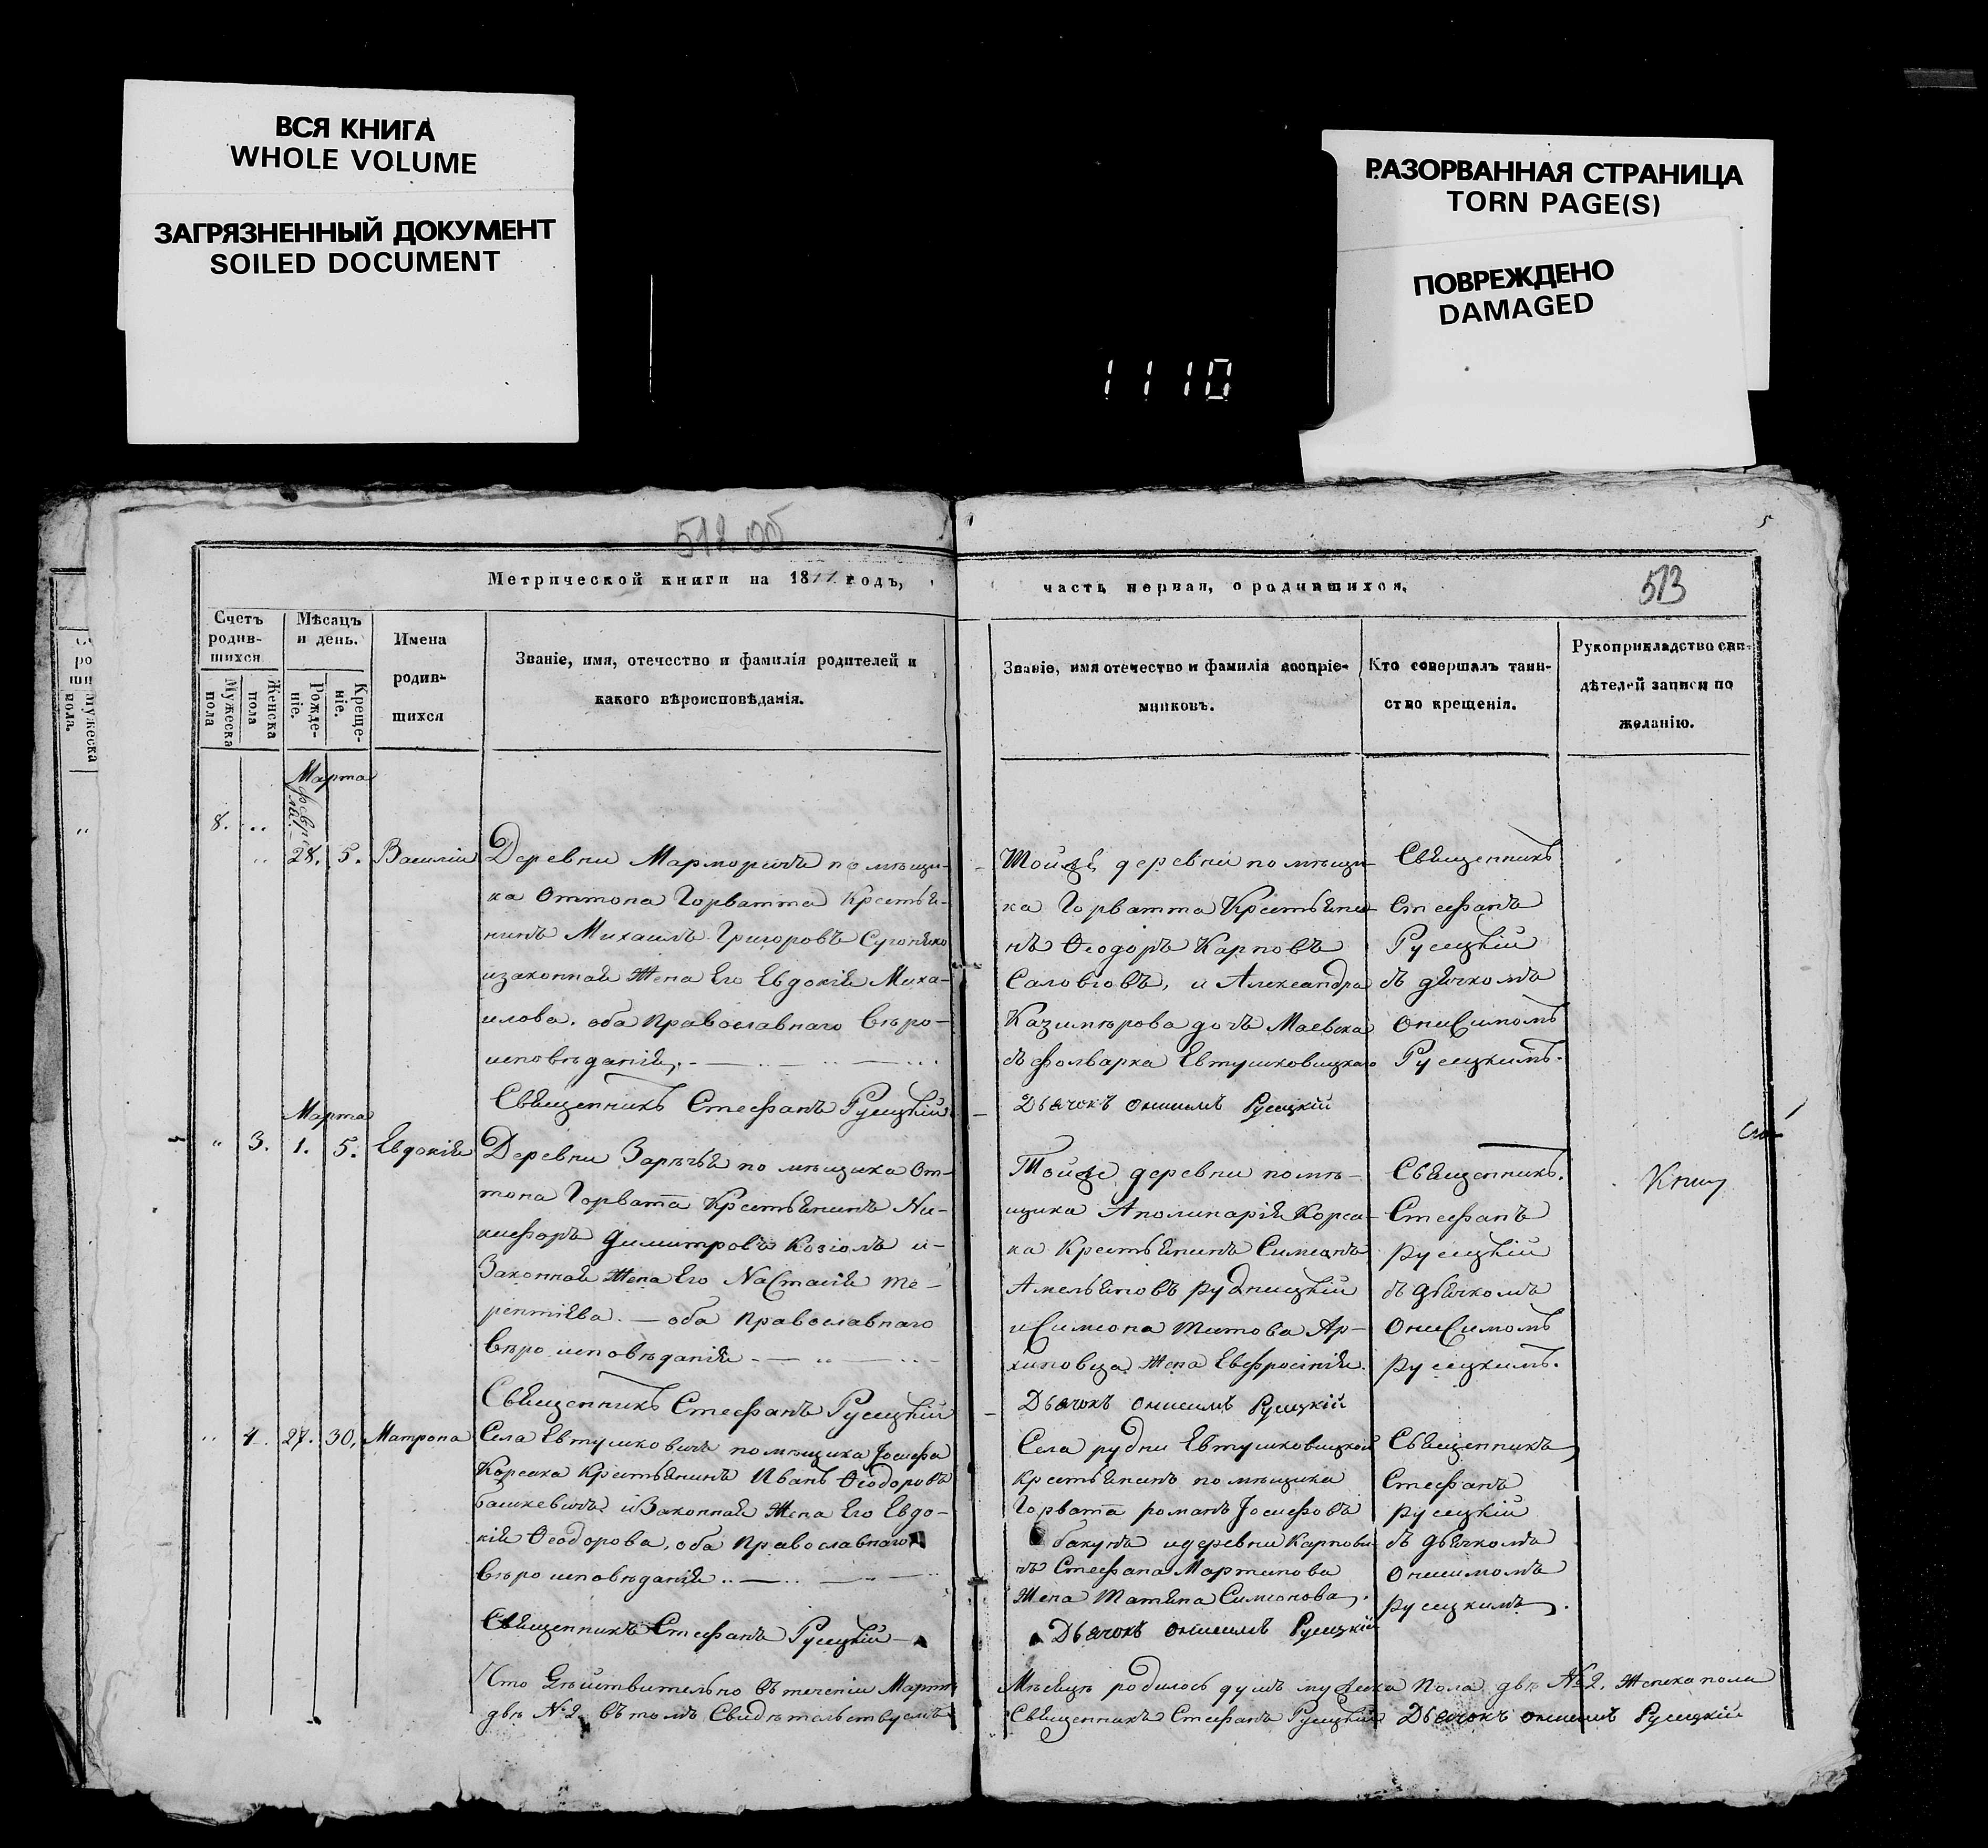 ВСЯ КНИГА
WHOLE VOLUME
ЗАГРЯЗНЕННЫЙ ДОКУМЕНТ
SOILED DOCUMENT
РАЗОРВАННАЯ СТРАНИЦА
TORN PAGE(S)
ПОВРЕЖДЕНО
DAMAGED
1110
512 об
5
513
Метрической книги на 18 годъ,
часть первая, о родившихся.
Счетъ родив-шихся
Мужеска пола
Женска пола
Мѣсяцъ и день.
Рожде-ніе.
Креще-ніе.
Имена родив-шихся
Званіе, имя, отечество и фамилія родителей и
какого вѣроисповѣданія.
Званіе, имя отечество и фамилія воспріе-
мниковъ.
Кто совершалъ таин-
ство крещенія.
Рукоприкладство сви-
дѣтелей записи по
желанію.
Марта
февр
8.
28. 5. Василій
Деревни Марморичъ помѣщи-
ка Оттона Горватта Крестья-
нинъ Михаилъ Григоровъ
изаконная Жена Его Евдокія Миха-
илова. оба Православнаго Вѣро-
исповѣданія.
Священникъ Стефанъ Русецкій
Тойже деревни помѣщи-
ка Горватта Крестьяни-
нъ Ѳеодоръ Карповъ
Саловіовъ, и Александра
Казимѣрова дочъ Маевска
съ фольварка Евтушковицкаго
Дьячокъ Онисимъ Русецкій
Священникъ
Стефанъ
Русецкій
съ дьячкомъ
Онисимомъ
Русецкимъ.
Марта
3. 1. 5. Евдокія
Деревни Зарѣчья помѣщика От-
тона Горвата Крестьянинъ Ни-
кифоръ Димитровъ Козіолъ и
Законная Жена Его Настасія Те-
рентіева. — оба Православнаго
Вѣроисповѣданія
Священникъ Стефанъ Русецкій
Тойже деревни помѣ-
щика Аполинарія Корса-
ка Крестьянинъ Симеонъ
Амельяновъ Рудницкій
и Симеона Титова Ар-
хиповца Жена Евфросінія.
Дьячокъ Онисимъ Русецкій
Священникъ.
Стефанъ
Русецкій
съ дьячкомъ
Онисимомъ
Русецкимъ.
4. 27. 30. Матрона
Села Евтушковичъ помѣщика Іосифа
Корсака Крестьянинъ Иванъ Ѳеодоровъ
Башкевичъ и Законная Жена Его Евдо-
кія Ѳеодорова, оба Православнаго
Вѣроисповѣданія
Священникъ Стефанъ Русецкій
Села рудни Евтушковицкой
крестьянинъ помѣщика
Горвата романъ Іосифовъ
бакунъ идеревни Карпови
чъ Стефана Мартинова
Жена Татяна Симіонова.
Дьячокъ Онисимъ Русецкій
Священникъ
Стефанъ
Русецкій
съ дьячкомъ
Онисимомъ
Русецкимъ.
Что Дѣйствительно Въ теченіи Марта Мѣсяцѣ родилось душъ мужеска Пола двѣ № 2. Женска пола
двѣ № 2. въ томъ Свидѣтельствуемъ Священникъ Стефанъ Русецкій Дьячокъ Онисимъ Русецкій